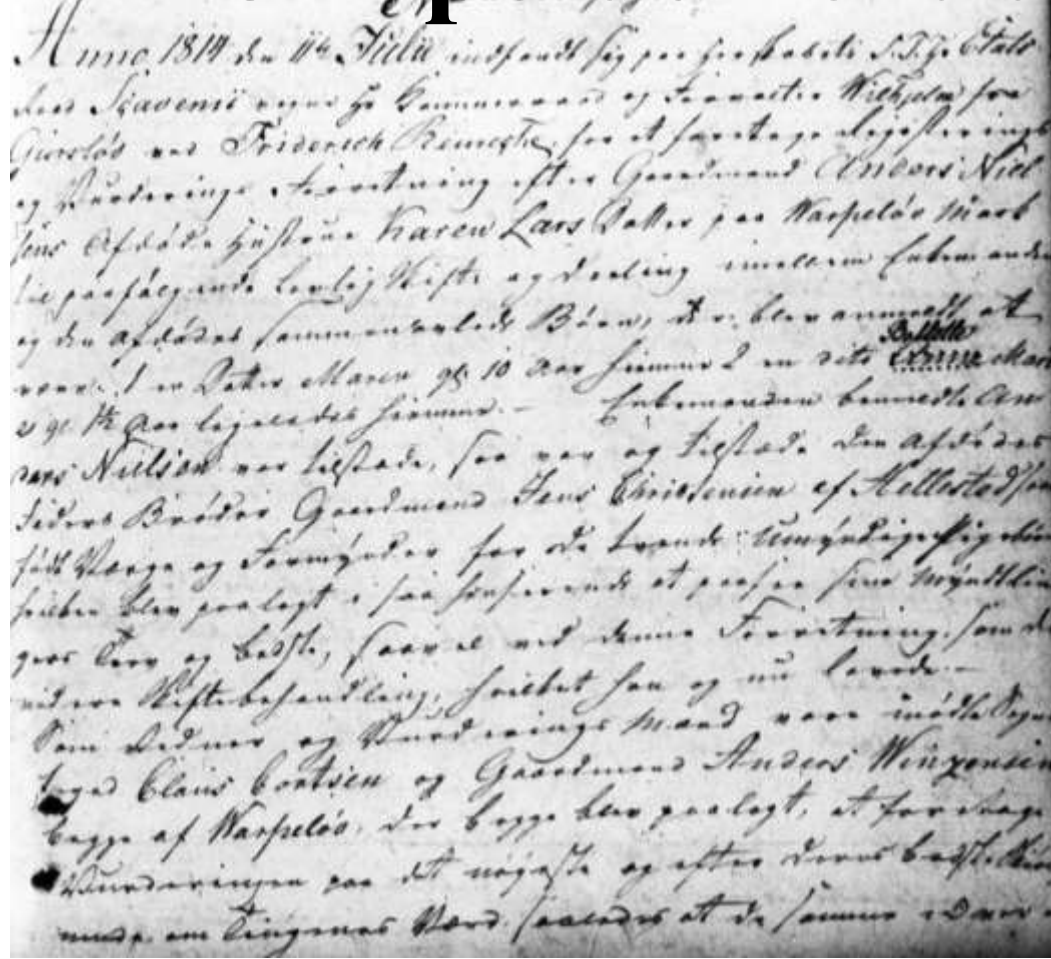 Anno 1814 den 11te Julii indfandt sig paa Herskabets S. T. Hr Etats
Raad Scavenii vegne Hr Kammerraad og Forvalter Wilhjelm fra
Giersløv ved Friderich for at foretage Registerings
og Vurderings Forretning efter Gaardmand Anders Niel
sens Afdøde Hustrue Karen Lars Datter paa Warpeløv Mark
til paafølgende Lovlig Skifte og Deeling imellem Enkemanden
og den Afdødes sammenavlede Børn, der blev anmeldt at
være 1 en Datter Maren gl 10 Aar hiemme 2 en dito Bodille Mar
gl 1½ Aar ligeledes hiemme. — Enkemanden bemeldte An
ders Nielsen var tilstæde, saa var og tilstæde den Afdødes
Faders Broder Gaardmand Jens Christensen af Hellested som
født Værge og Formynder for de tvende Umyndige Pigebørn
hvilken blev paalagt i saa henseende at paasee sine Myndtlin
gers Tarv og bedste, saavel ved denne Forretning som de
videre Skiftebehandling, hvilket han og nu lovede. —
Som Vidner og Vurderings Mænd vare mødte Sogne
foged Claus Cortsen og Gaardmand Anders
begge af Warpeløv, der begge blev paalagt, at foretage
Vurderingen paa det nøyeste og efter deres bedste
om Tingenes Værd saaledes at de samme